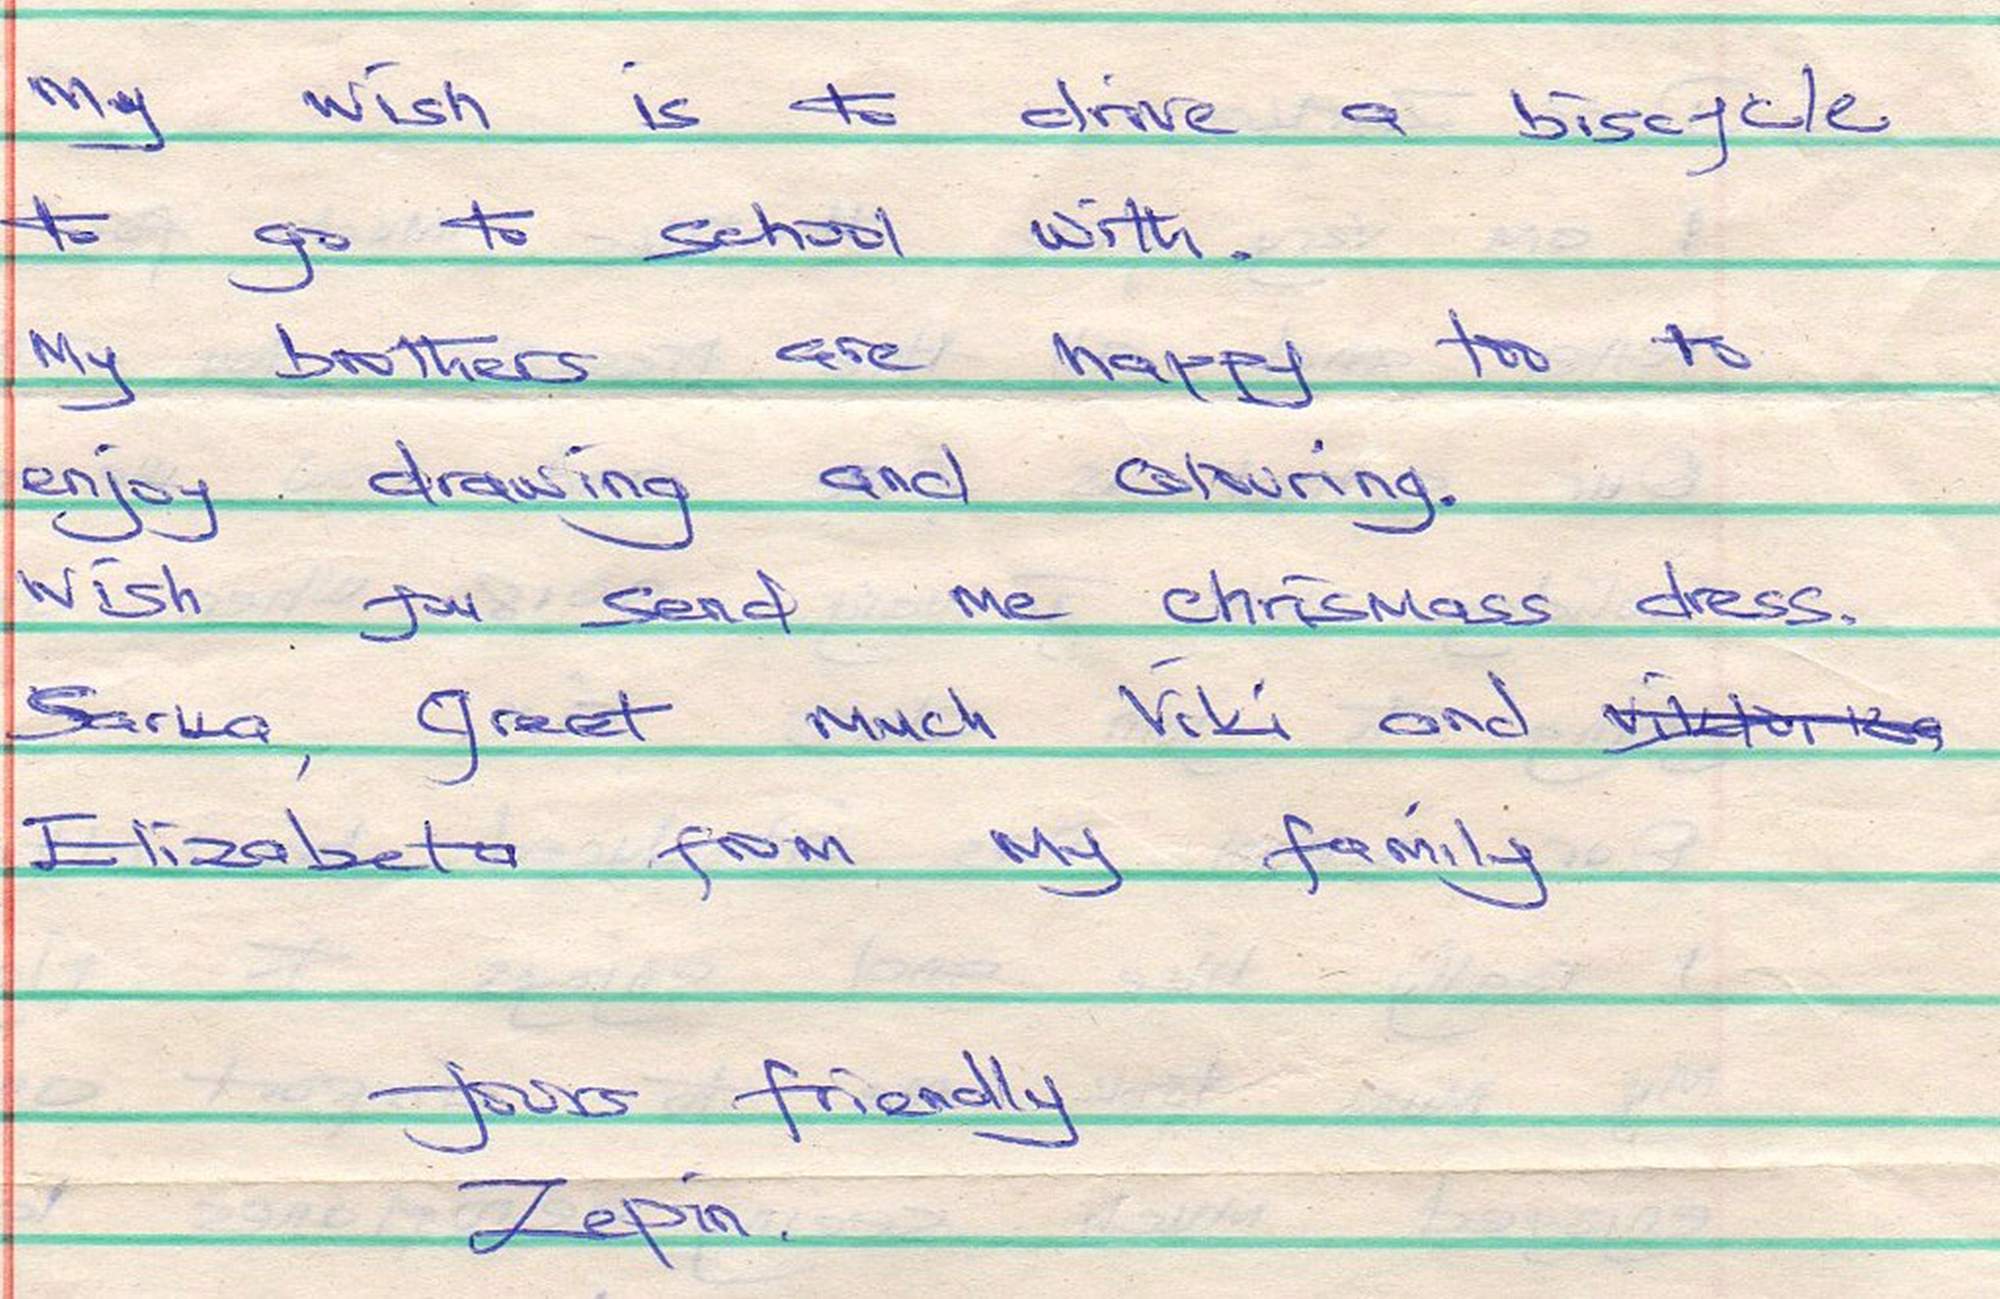 My wish is to drive a biscycle
to go to school with.
My brothers are happy too to
enjoy drawing and colouring.
Wish you send me chrismass dress.
Sarka, greet much Viki and viktorka
Elizabeta from my family
Yours friendly
Zepin.